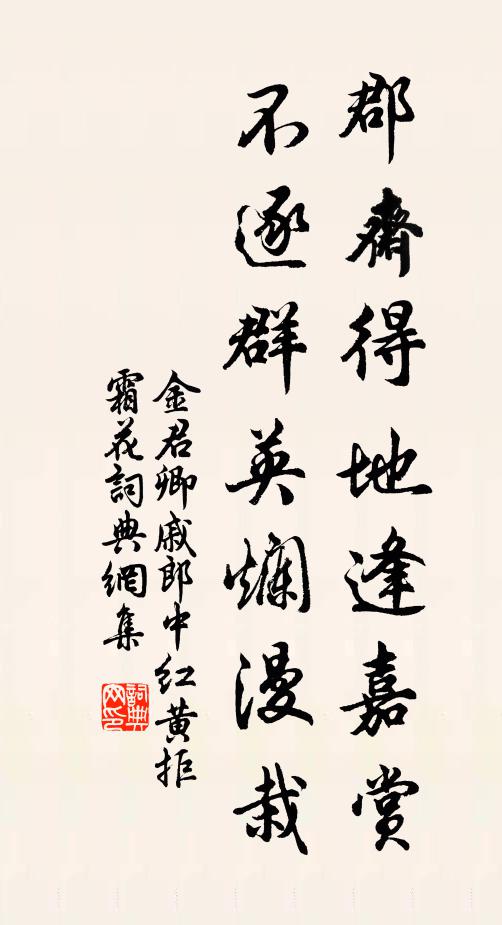 郡齋得地逢嘉賞
不逐群英爛漫栽
金君卿戚郎中红黄拒
霜花詞典網集
詞典网印